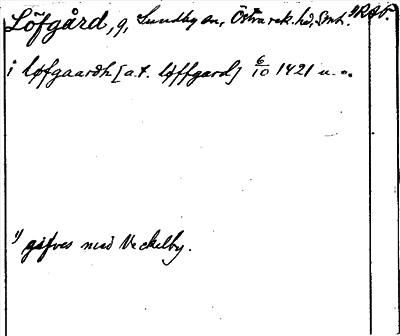 Löfgård, g, Lundby sn, Östra rek. hd, Sml. ¹) RAP.
i løfgaardh [a.t. løffgard] 6/10 1421 u. ..
¹) gifves med Veckelby.